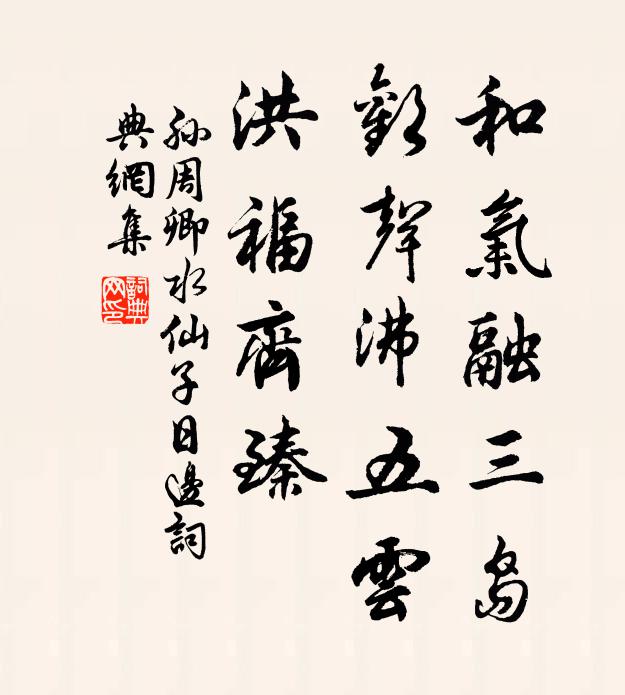 和氣融三島
歡聲沸五雲
洪福齊臻
孫周卿水仙子日邊詞
典網集
詞典
网印